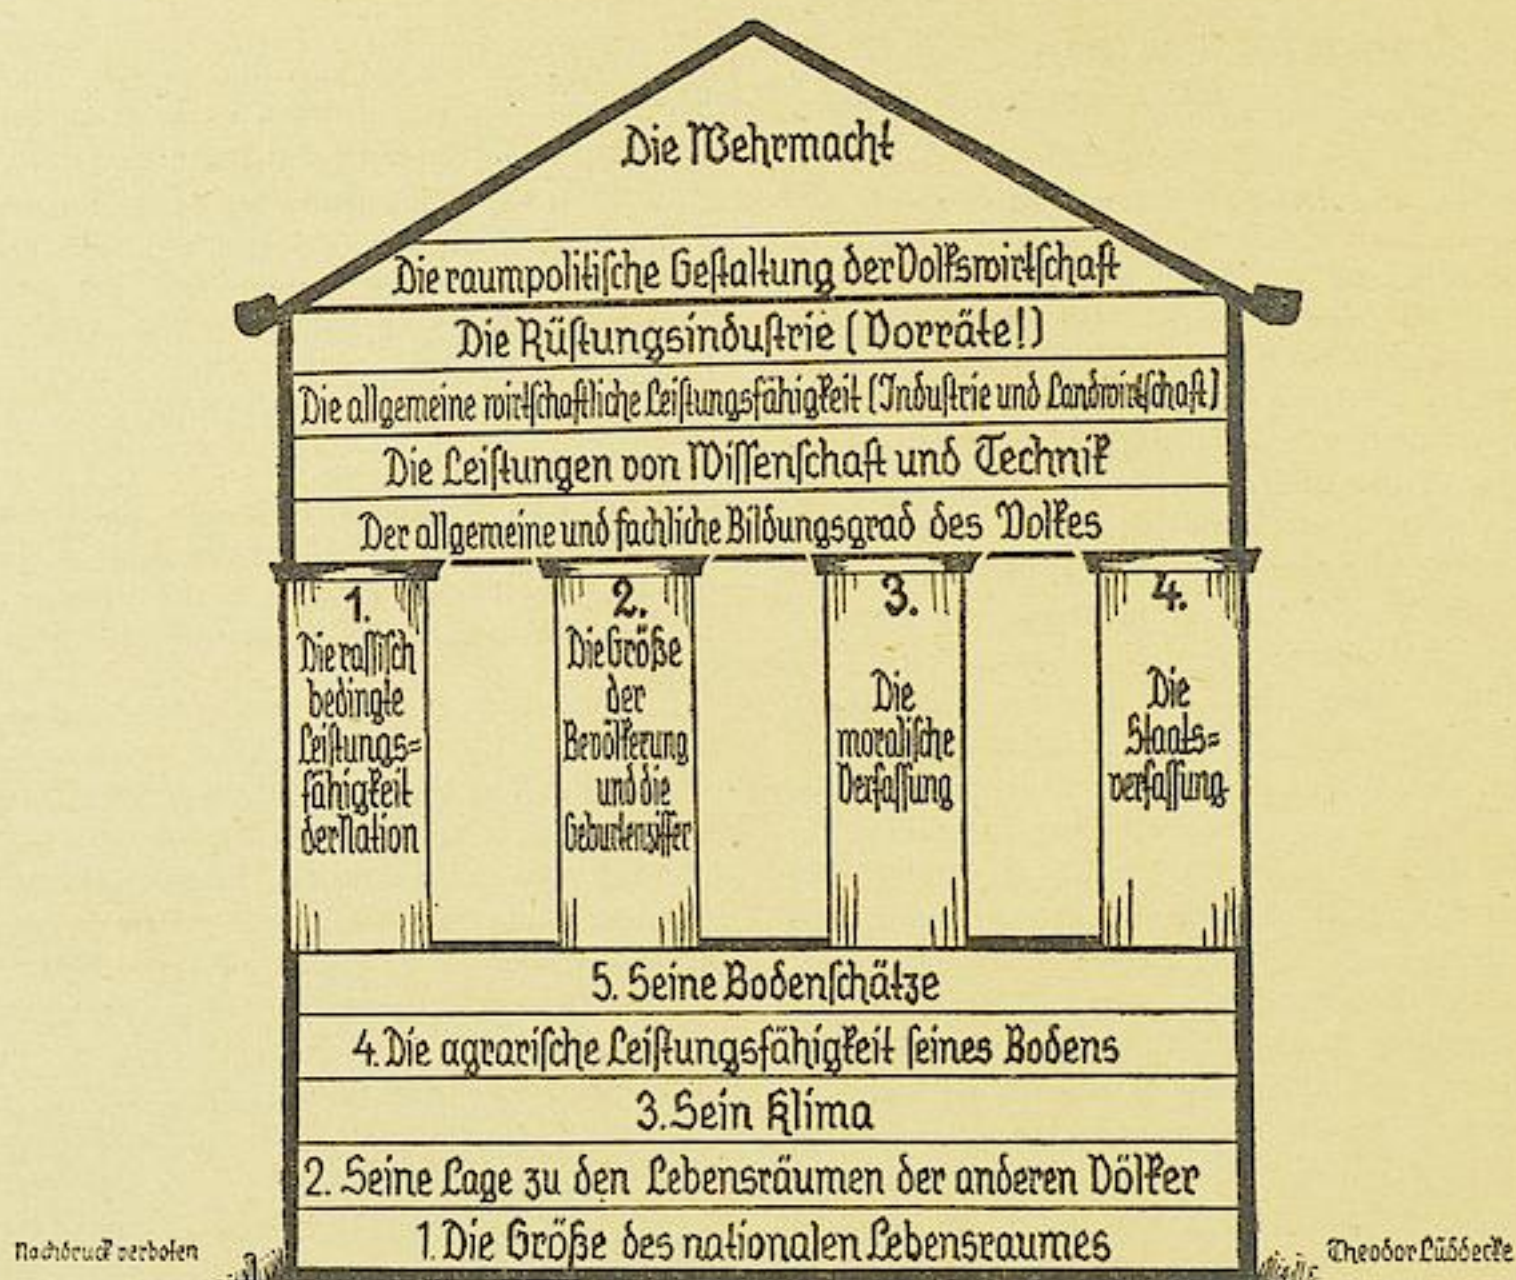 Die Wehrmacht
Die raumpolitische Gestaltung der Volkswirtschaft
Die Rüstungsindustrie (Vorräte!)
Die allgemeine wirtschaftliche Leistungsfähigkeit (Industrie und Landwirtschaft)
Die Leistungen von Wissenschaft und Technik
Der allgemeine und fachliche Bildungsgrad des Volkes
1.
Die rassisch
bedingte
Leistungs=
fähigkeit
der Nation
2.
Die Größe
der
Bevölkerung
und die
Geburtenziffer
3.
Die
moralische
Verfassung
4.
Die
Staats=
verfassung
5. Seine Bodenschätze
4. Die agrarische Leistungsfähigkeit seines Bodens
3. Sein Klima
2. Seine Lage zu den Lebensräumen der anderen Völker
1. Die Größe des nationalen Lebensraumes
Nachdruck verboten
Theodor Lüddecke